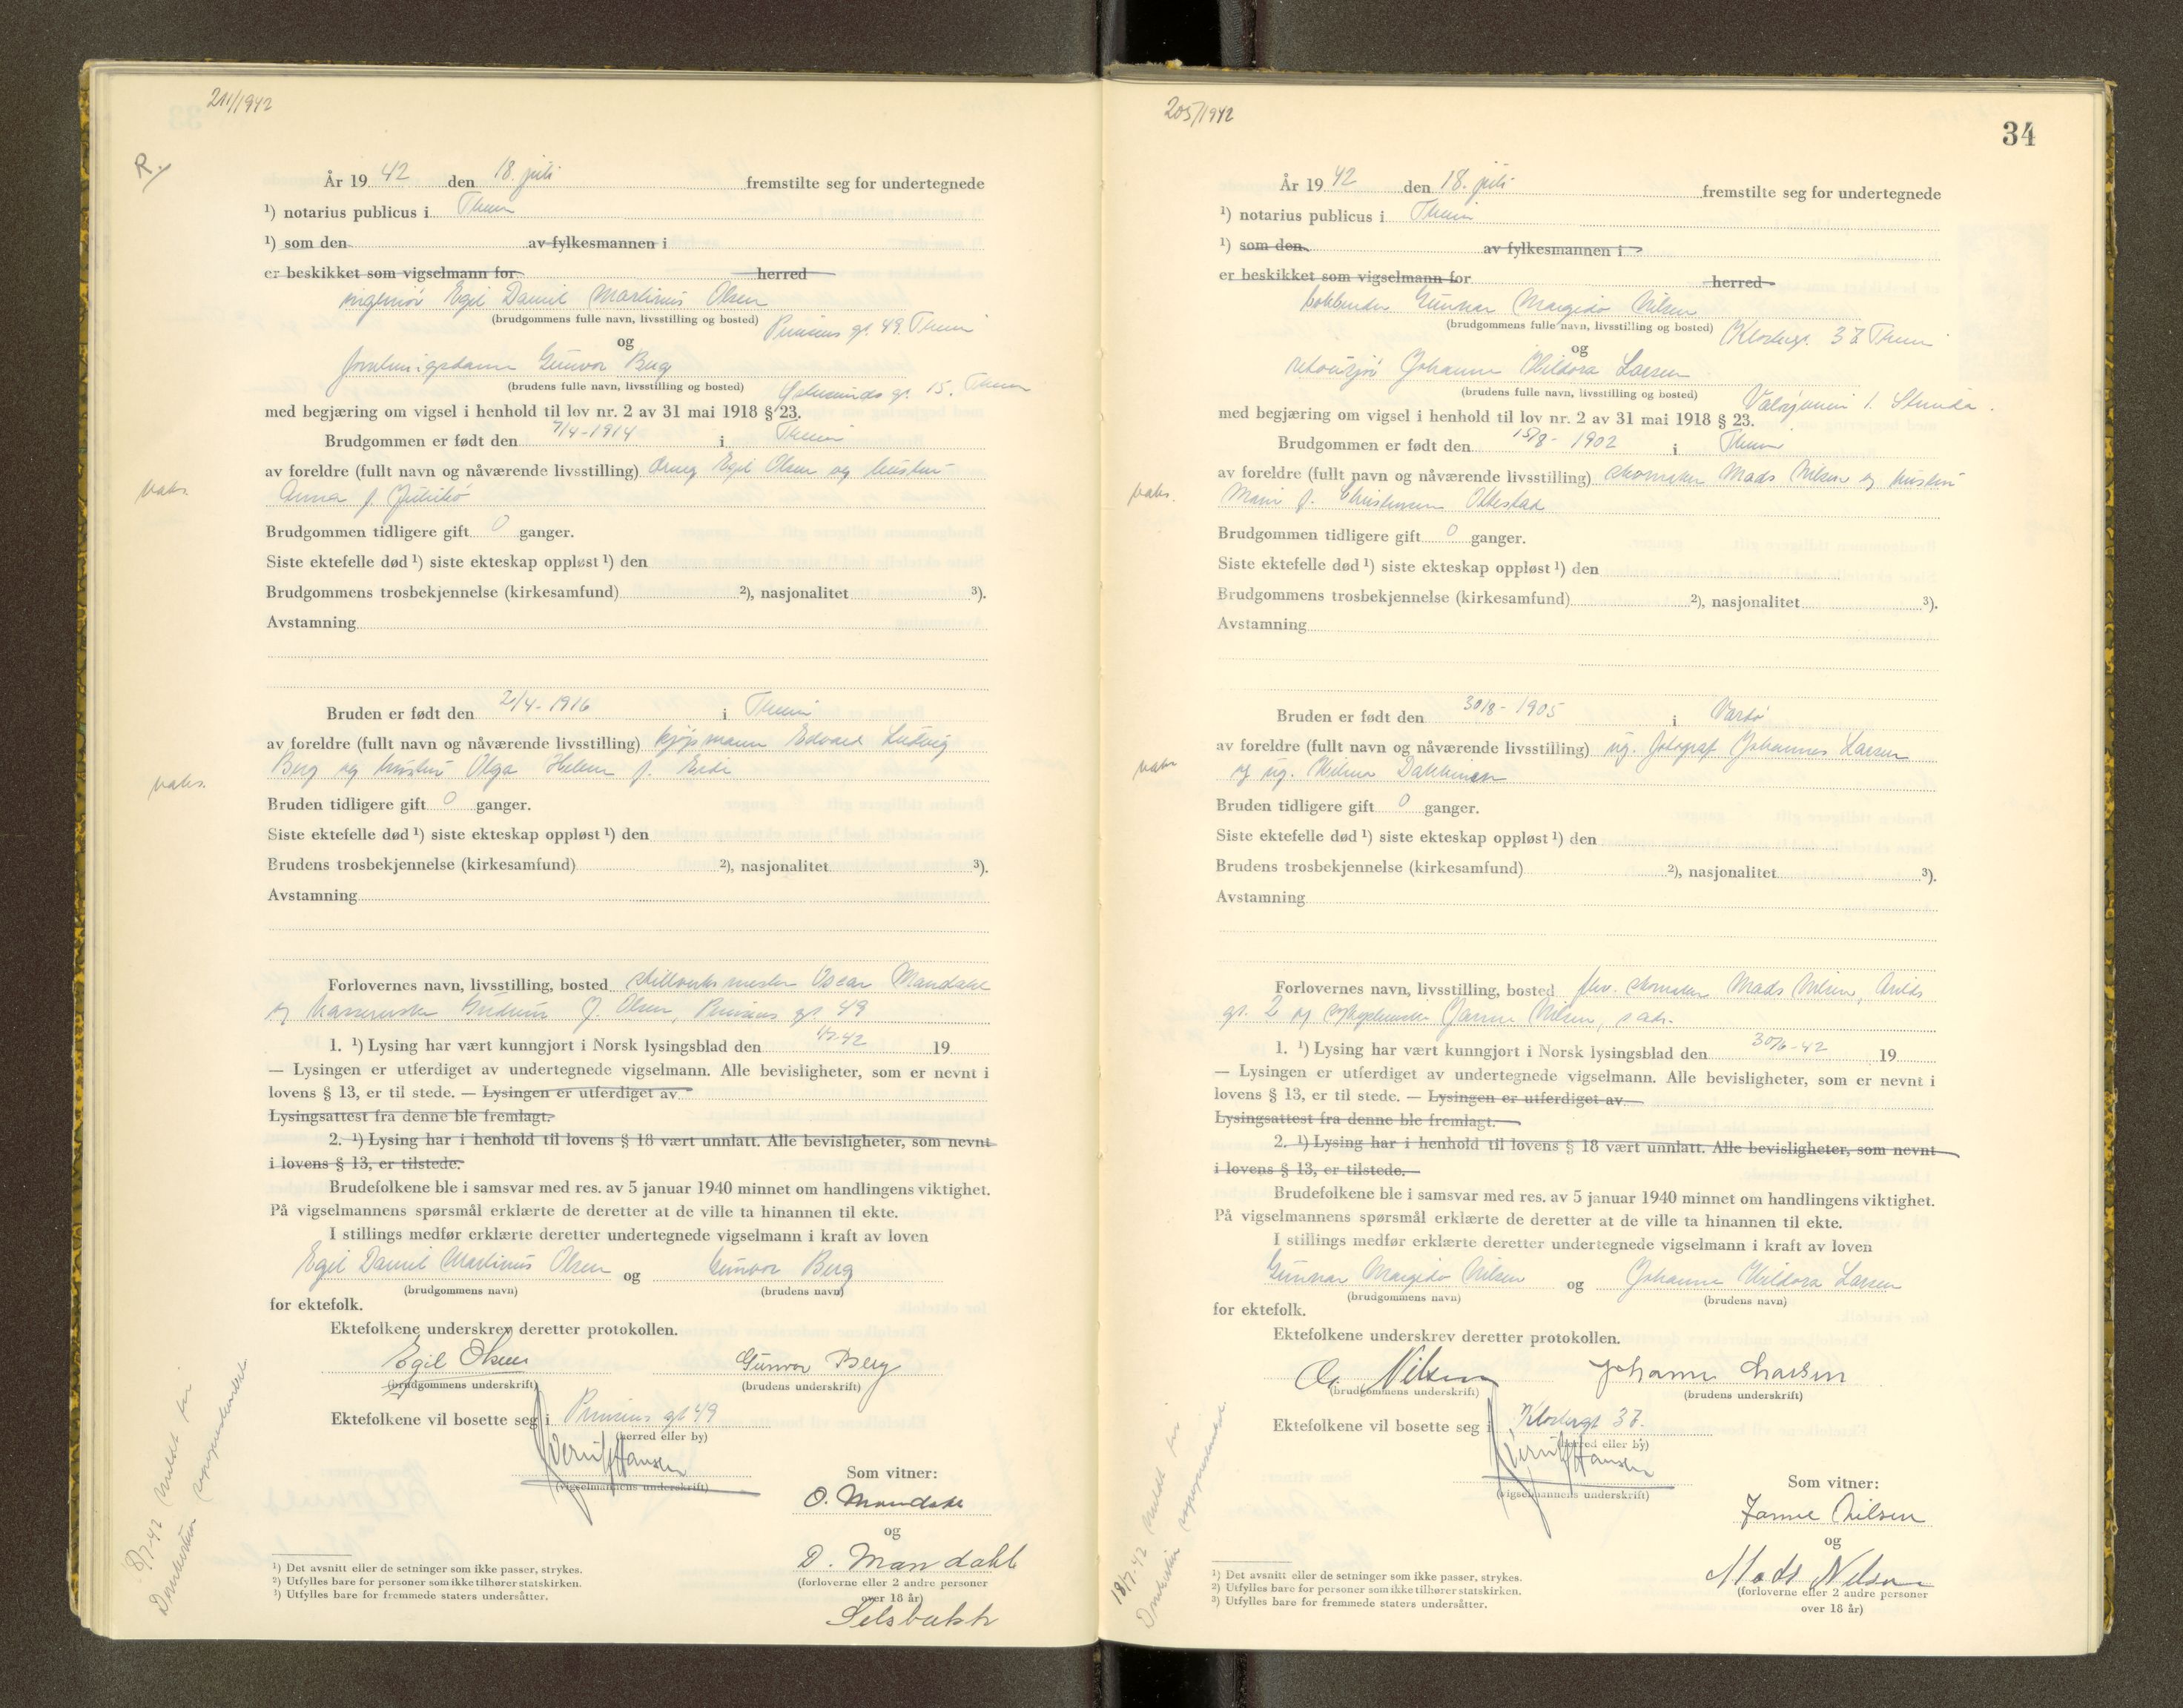 211/1942
År 19 42 den 18. juli fremstilte seg for undertegnede
¹) notarius publicus i
¹) som den av fylkesmannen i
er beskikket som vigselmann for herred
ingeniør Egil Daniel Martinus Olsen
(brudgommens fulle navn, livsstilling og bosted) gt 49
og
Gunvor Berg
(brudens fulle navn, livsstilling og bosted) gt. 15.
med begjæring om vigsel i henhold til lov nr. 2 av 31 mai 1918 § 23.
Brudgommen er født den 7/4-1914 i
av foreldre (fullt navn og nåværende livsstilling) Egil Olsen og hustru
vaks. Anna f.
Brudgommen tidligere gift 0 ganger.
Siste ektefelle død ¹) siste ekteskap oppløst ¹) den
Brudgommens trosbekjennelse (kirkesamfund) ²), nasjonalitet ³).
Avstamning
Bruden er født den 2/4-1916 i
av foreldre (fullt navn og nåværende livsstilling) kjøpmann Edvard Ludvig
vaks. Berg og hustru Olga Helene f.
Bruden tidligere gift 0 ganger.
Siste ektefelle død ¹) siste ekteskap oppløst ¹) den
Brudens trosbekjennelse (kirkesamfund) ²), nasjonalitet ³).
Avstamning
Forlovernes navn, livsstilling, bosted Oscar Mandahl
og Gudrun J. Olsen, gt 49
1. ¹) Lysing har vært kunngjort i Norsk lysingsblad den 19
— Lysingen er utferdiget av undertegnede vigselmann. Alle bevisligheter, som er nevnt i
lovens § 13, er til stede. — Lysingen er utferdiget av
Lysingsattest fra denne ble fremlagt.
2. ¹) Lysing har i henhold til lovens § 18 vært unnlatt. Alle bevisligheter, som nevnt
i lovens § 13, er tilstede.
Brudefolkene ble i samsvar med res. av 5 januar 1940 minnet om handlingens viktighet.
På vigselmannens spørsmål erklærte de deretter at de ville ta hinannen til ekte.
I stillings medfør erklærte deretter undertegnede vigselmann i kraft av loven
Egil Daniel Martinus Olsen og Gunvor Berg
(brudgommens navn) (brudens navn)
for ektefolk.
Ektefolkene underskrev deretter protokollen.
Egil Olsen Gunvor Berg
(brudgommens underskrift) (brudens underskrift)
Ektefolkene vil bosette seg i gt 49
(herred eller by)
Hansen
(vigselmannens underskrift)
Som vitner:
O. Mandahl
og
D. Mandahl
(forloverne eller 2 andre personer
over 18 år)
Selsbakk
¹) Det avsnitt eller de setninger som ikke passer, strykes.
²) Utfylles bare for personer som ikke tilhører statskirken.
³) Utfylles bare for fremmede staters undersåtter.
205/1942
34
År 19 42 den 18. juli fremstilte seg for undertegnede
¹) notarius publicus i
¹) som den av fylkesmannen i
er beskikket som vigselmann for herred
Gunnar Margido Nilsen
(brudgommens fulle navn, livsstilling og bosted)
og
Johanne Hildora Larsen
(brudens fulle navn, livsstilling og bosted)
med begjæring om vigsel i henhold til lov nr. 2 av 31 mai 1918 § 23.
Brudgommen er født den 15/8-1902 i
av foreldre (fullt navn og nåværende livsstilling) skomaker Mads Nilsen og hustru
vaks. f.
Brudgommen tidligere gift 0 ganger.
Siste ektefelle død ¹) siste ekteskap oppløst ¹) den
Brudgommens trosbekjennelse (kirkesamfund) ²), nasjonalitet ³).
Avstamning
Bruden er født den 30/8-1905 i Vardø
av foreldre (fullt navn og nåværende livsstilling) ug. fotograf Johannes Larsen
og ug.
Bruden tidligere gift 0 ganger.
Siste ektefelle død ¹) siste ekteskap oppløst ¹) den
Brudens trosbekjennelse (kirkesamfund) ²), nasjonalitet ³).
Avstamning
Forlovernes navn, livsstilling, bosted skomaker Mads Nilsen, Arilds
gt. 2 og Nilsen, s. adr.
1. ¹) Lysing har vært kunngjort i Norsk lysingsblad den 30/6-42 19
— Lysingen er utferdiget av undertegnede vigselmann. Alle bevisligheter, som er nevnt i
lovens § 13, er til stede. — Lysingen er utferdiget av
Lysingsattest fra denne ble fremlagt.
2. ¹) Lysing har i henhold til lovens § 18 vært unnlatt. Alle bevisligheter, som nevnt
i lovens § 13, er tilstede.
Brudefolkene ble i samsvar med res. av 5 januar 1940 minnet om handlingens viktighet.
På vigselmannens spørsmål erklærte de deretter at de ville ta hinannen til ekte.
I stillings medfør erklærte deretter undertegnede vigselmann i kraft av loven
Gunnar Margido Nilsen og Johanne Hildora Larsen
(brudgommens navn) (brudens navn)
for ektefolk.
Ektefolkene underskrev deretter protokollen.
Nilsen Johanne Larsen
(brudgommens underskrift) (brudens underskrift)
Ektefolkene vil bosette seg i Klostergt 37.
(herred eller by)
Hansen
(vigselmannens underskrift)
Som vitner:
Nilsen
og
Mads Nilsen
(forloverne eller 2 andre personer
over 18 år)
¹) Det avsnitt eller de setninger som ikke passer, strykes.
²) Utfylles bare for personer som ikke tilhører statskirken.
³) Utfylles bare for fremmede staters undersåtter.